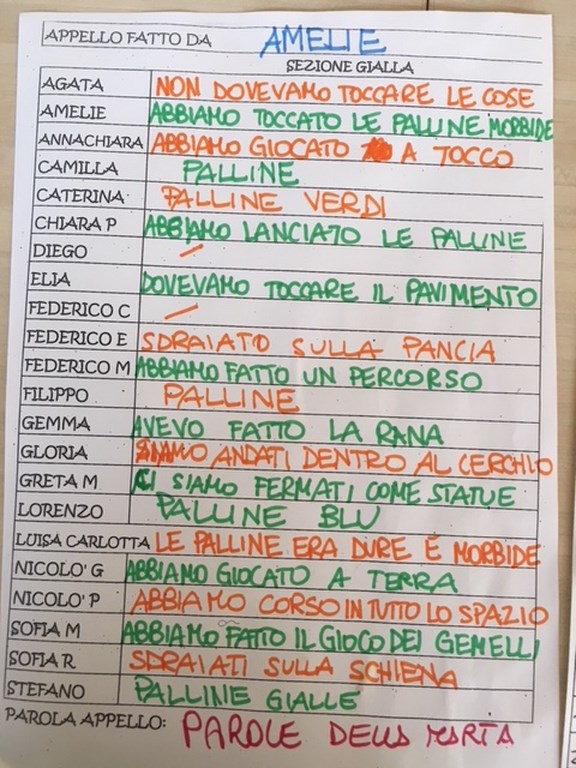 APPELLO FATTO DA AMELIE
SEZIONE GIALLA
AGATA NON DOVEVAMO TOCCARE LE COSE
AMELIE ABBIAMO TOCCATO LE PALLINE MORBIDE
ANNACHIARA ABBIAMO GIOCATO A TOCCO
CAMILLA PALLINE
CATERINA PALLINE VERDI
CHIARA P ABBIAMO LANCIATO LE PALLINE
DIEGO –
ELIA DOVEVAMO TOCCARE IL PAVIMENTO
FEDERICO C –
FEDERICO E SDRAIATO SULLA PANCIA
FEDERICO M ABBIAMO FATTO UN PERCORSO
FILIPPO PALLINE
GEMMA AVEVO FATTO LA RANA
GLORIA SIAMO ANDATI DENTRO AL CERCHIO
GRETA M CI SIAMO FERMATI COME STATUE
LORENZO PALLINE BLU
LUISA CARLOTTA LE PALLINE ERA DURE E MORBIDE
NICOLO' G ABBIAMO GIOCATO A TERRA
NICOLO' P ABBIAMO CORSO IN TUTTO LO SPAZIO
SOFIA M ABBIAMO FATTO IL GIOCO DEI GEMELLI
SOFIA R SDRAIATI SULLA SCHIENA
STEFANO PALLINE GIALLE
PAROLA APPELLO: PAROLE DELLA MARTA